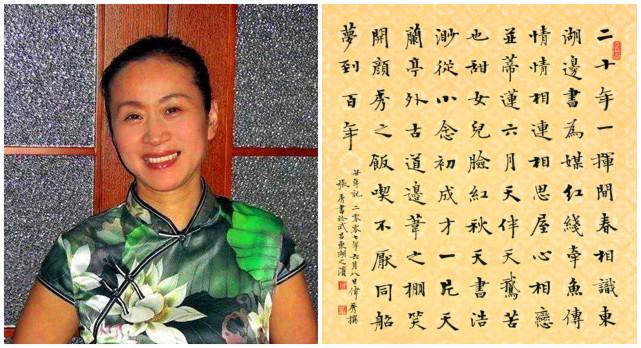 二十年一揮間春相識東
湖邊書為媒紅綫牽魚傳
情情相連相思屋心相戀
並蒂蓮六月天伴天鵞苦
也甜女兒臉紅秋天書浩
渺從小念初成才一片天
蘭亭外古道邊葦之棚笑
開顏秀之飯喫不厭同船
夢到百年
廿年記 二零零七年六月八日偉秀撰
張秀書於武昌東湖之濱